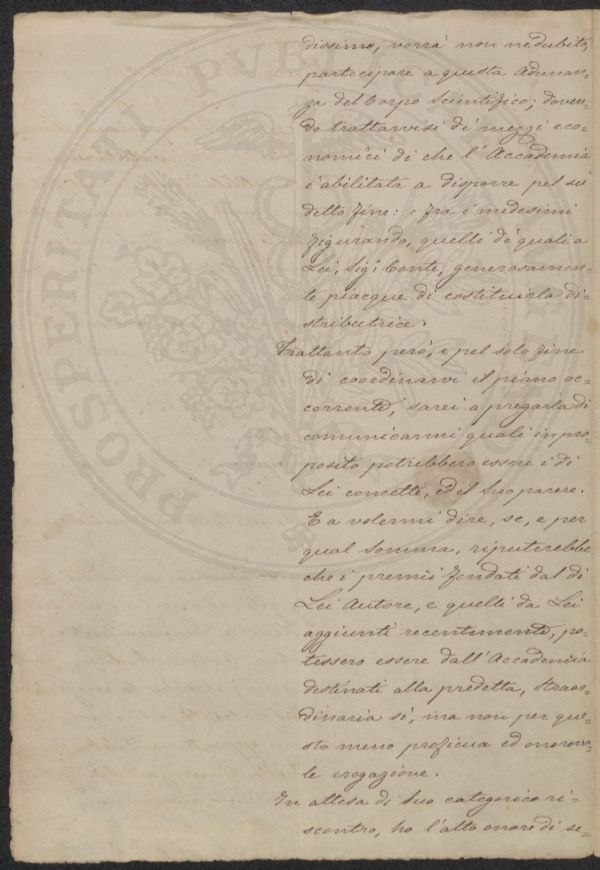 dissimo, vorrà non ne dubito,
partecipare a questa Adunan=
za del Corpo Scientifico; doven=
do trattarvisi de' mezzi eco=
nomici di che l'Accademia
è abilitata a disporre pel sud
detto fine: e fra i medesimi
figurando, quelli de' quali a
Lei, Sig. Conte, generosamen=
te piacque di costituirla di=
stributrice.
Trattanto però, e pel solo fine
di coordinarvi il piano oc=
corrente, sarei a pregarla di
comunicarmi quali in pro=
posito potrebbero essere i di
Lei concetti, ed il Suo parere.
E a volermi dire, se, e per
qual somma, riputerebbe
che i premii fondati dal di
Lei Autore, e quelli da Lei
aggiunti recentemente, po=
tessero essere dall'Accademia
destinati alla predetta, straor=
dinaria sì, ma non per que=
sto meno proficua ed onorevo=
le erogazione.
In attesa di Suo categorico ri=
scontro, ho l'alto onore di se=
PROSPERITATI PUBLIC